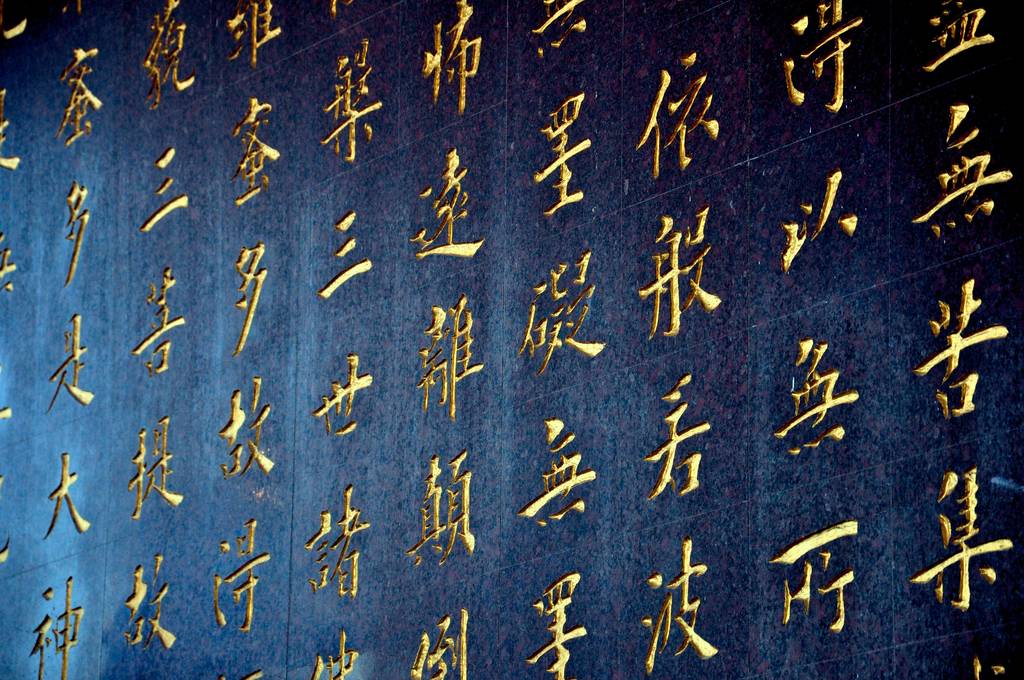 盡無苦集
得以無所
依般若波
無罣礙無罣
怖遠離顛倒
槃三世諸佛
羅蜜多故得
藐三菩提故
蜜多是大神